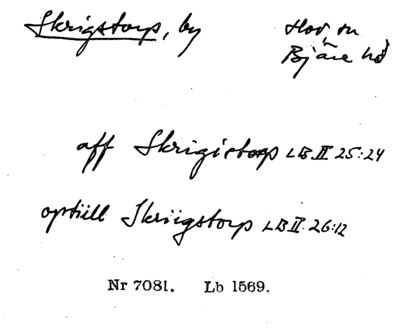 Skrigstorp, by Hov sn
Bjäre hd
aff Skrigistorp LB II 25:24
optiill Skriigstorp LB II 26:12
Nr 7081. Lb 1569.